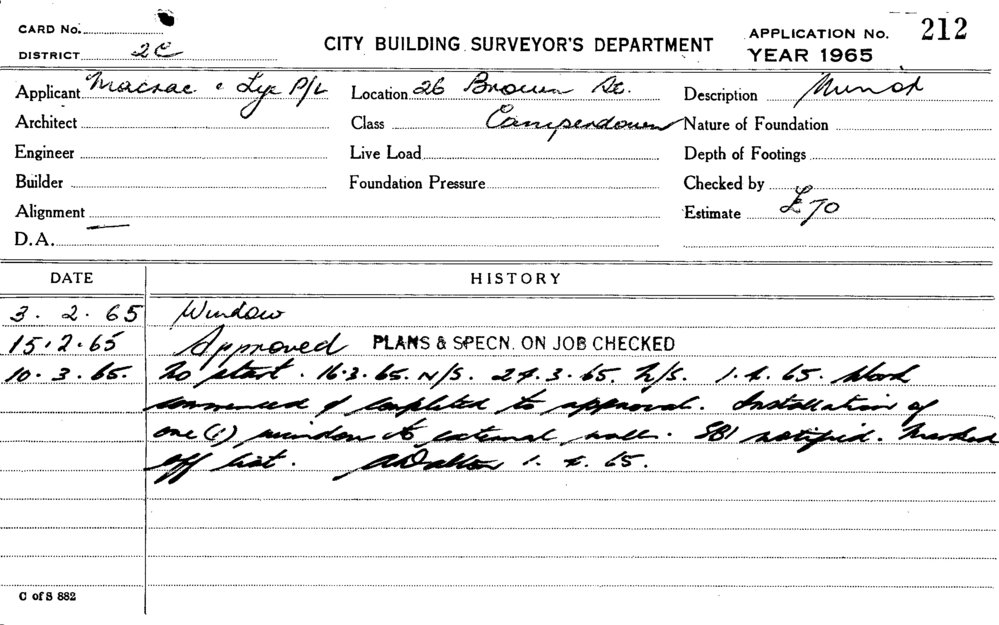 CARD No.
DISTRICT 2C
CITY BUILDING SURVEYOR'S DEPARTMENT
APPLICATION No. 212
YEAR 1965
Applicant Macrae & Lye P/L
Location 26 Brown St.
Description Minor
Architect
Class Camperdown
Nature of Foundation
Engineer
Live Load
Depth of Footings
Builder
Foundation Pressure
Checked by
Alignment
Estimate £70
D.A.
DATE HISTORY
3. 2. 65 Window
15.2.65 Approved PLANS & SPECN. ON JOB CHECKED
10. 3. 65. No start. 16.3.65. N/S. 24.3.65. N/S. 1.4.65. Work
commenced & completed to approval. Installation of
one (1) window to external wall. SBI notified. Marked
off list. 1. 4. 65.
C of S 882